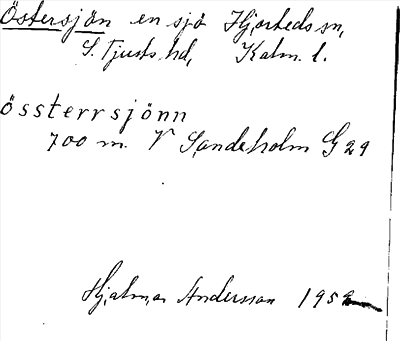 Östersjön en sjö Hjorteds sn,
S. Tjusts hd, Kalm. l.
össterrsjönn
700 m. V Sandeholm G 29
Hjalmar Andersson 1952